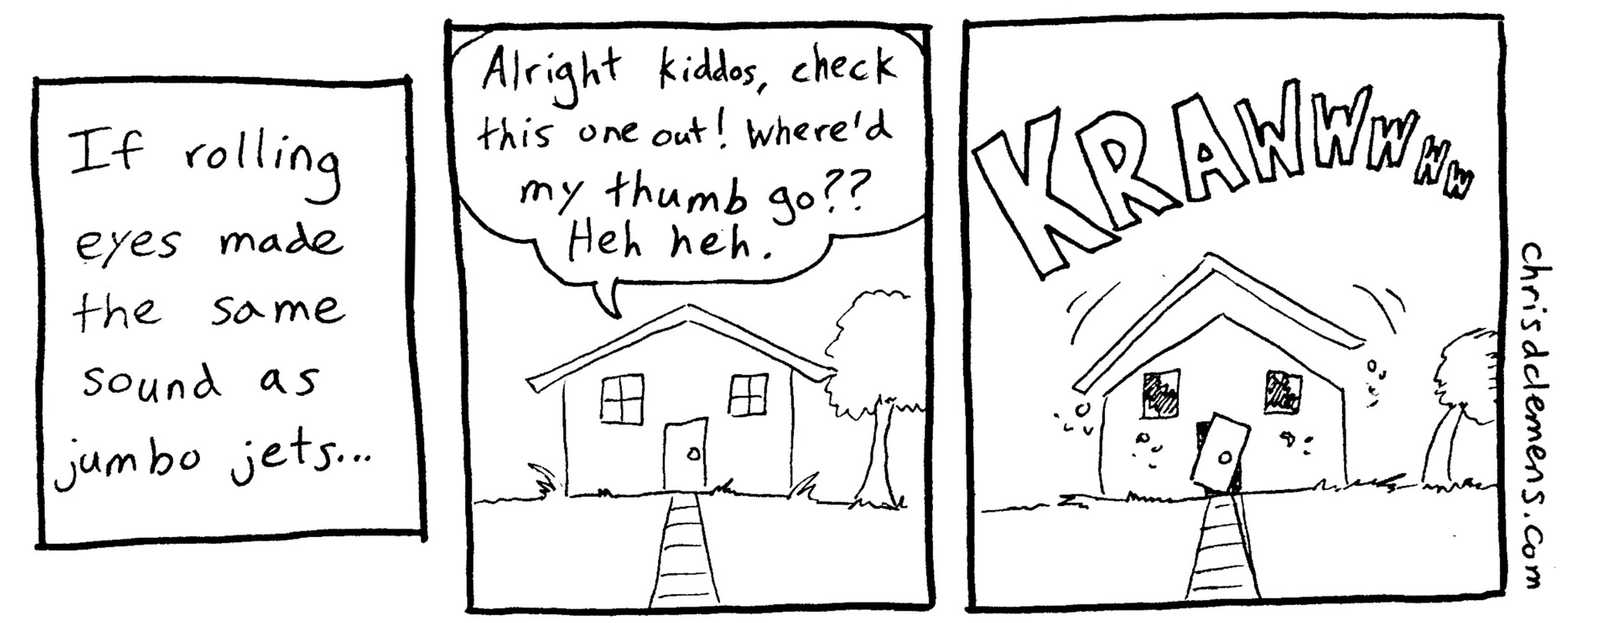 If rolling
eyes made
the same
sound as
jumbo jets...
Alright kiddos, check
this one out! Where'd
my thumb go??
Heh heh.
KRAWWWWW
chrisdclemens.com